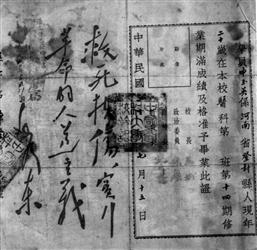 河南省登封縣人現年
歲在本校醫科第 班第十四期修
業期滿成績及格准予畢業此證
校長
政治委員
中華民國 七月十五日
救死扶傷,實行
革命的人道主義
毛澤東